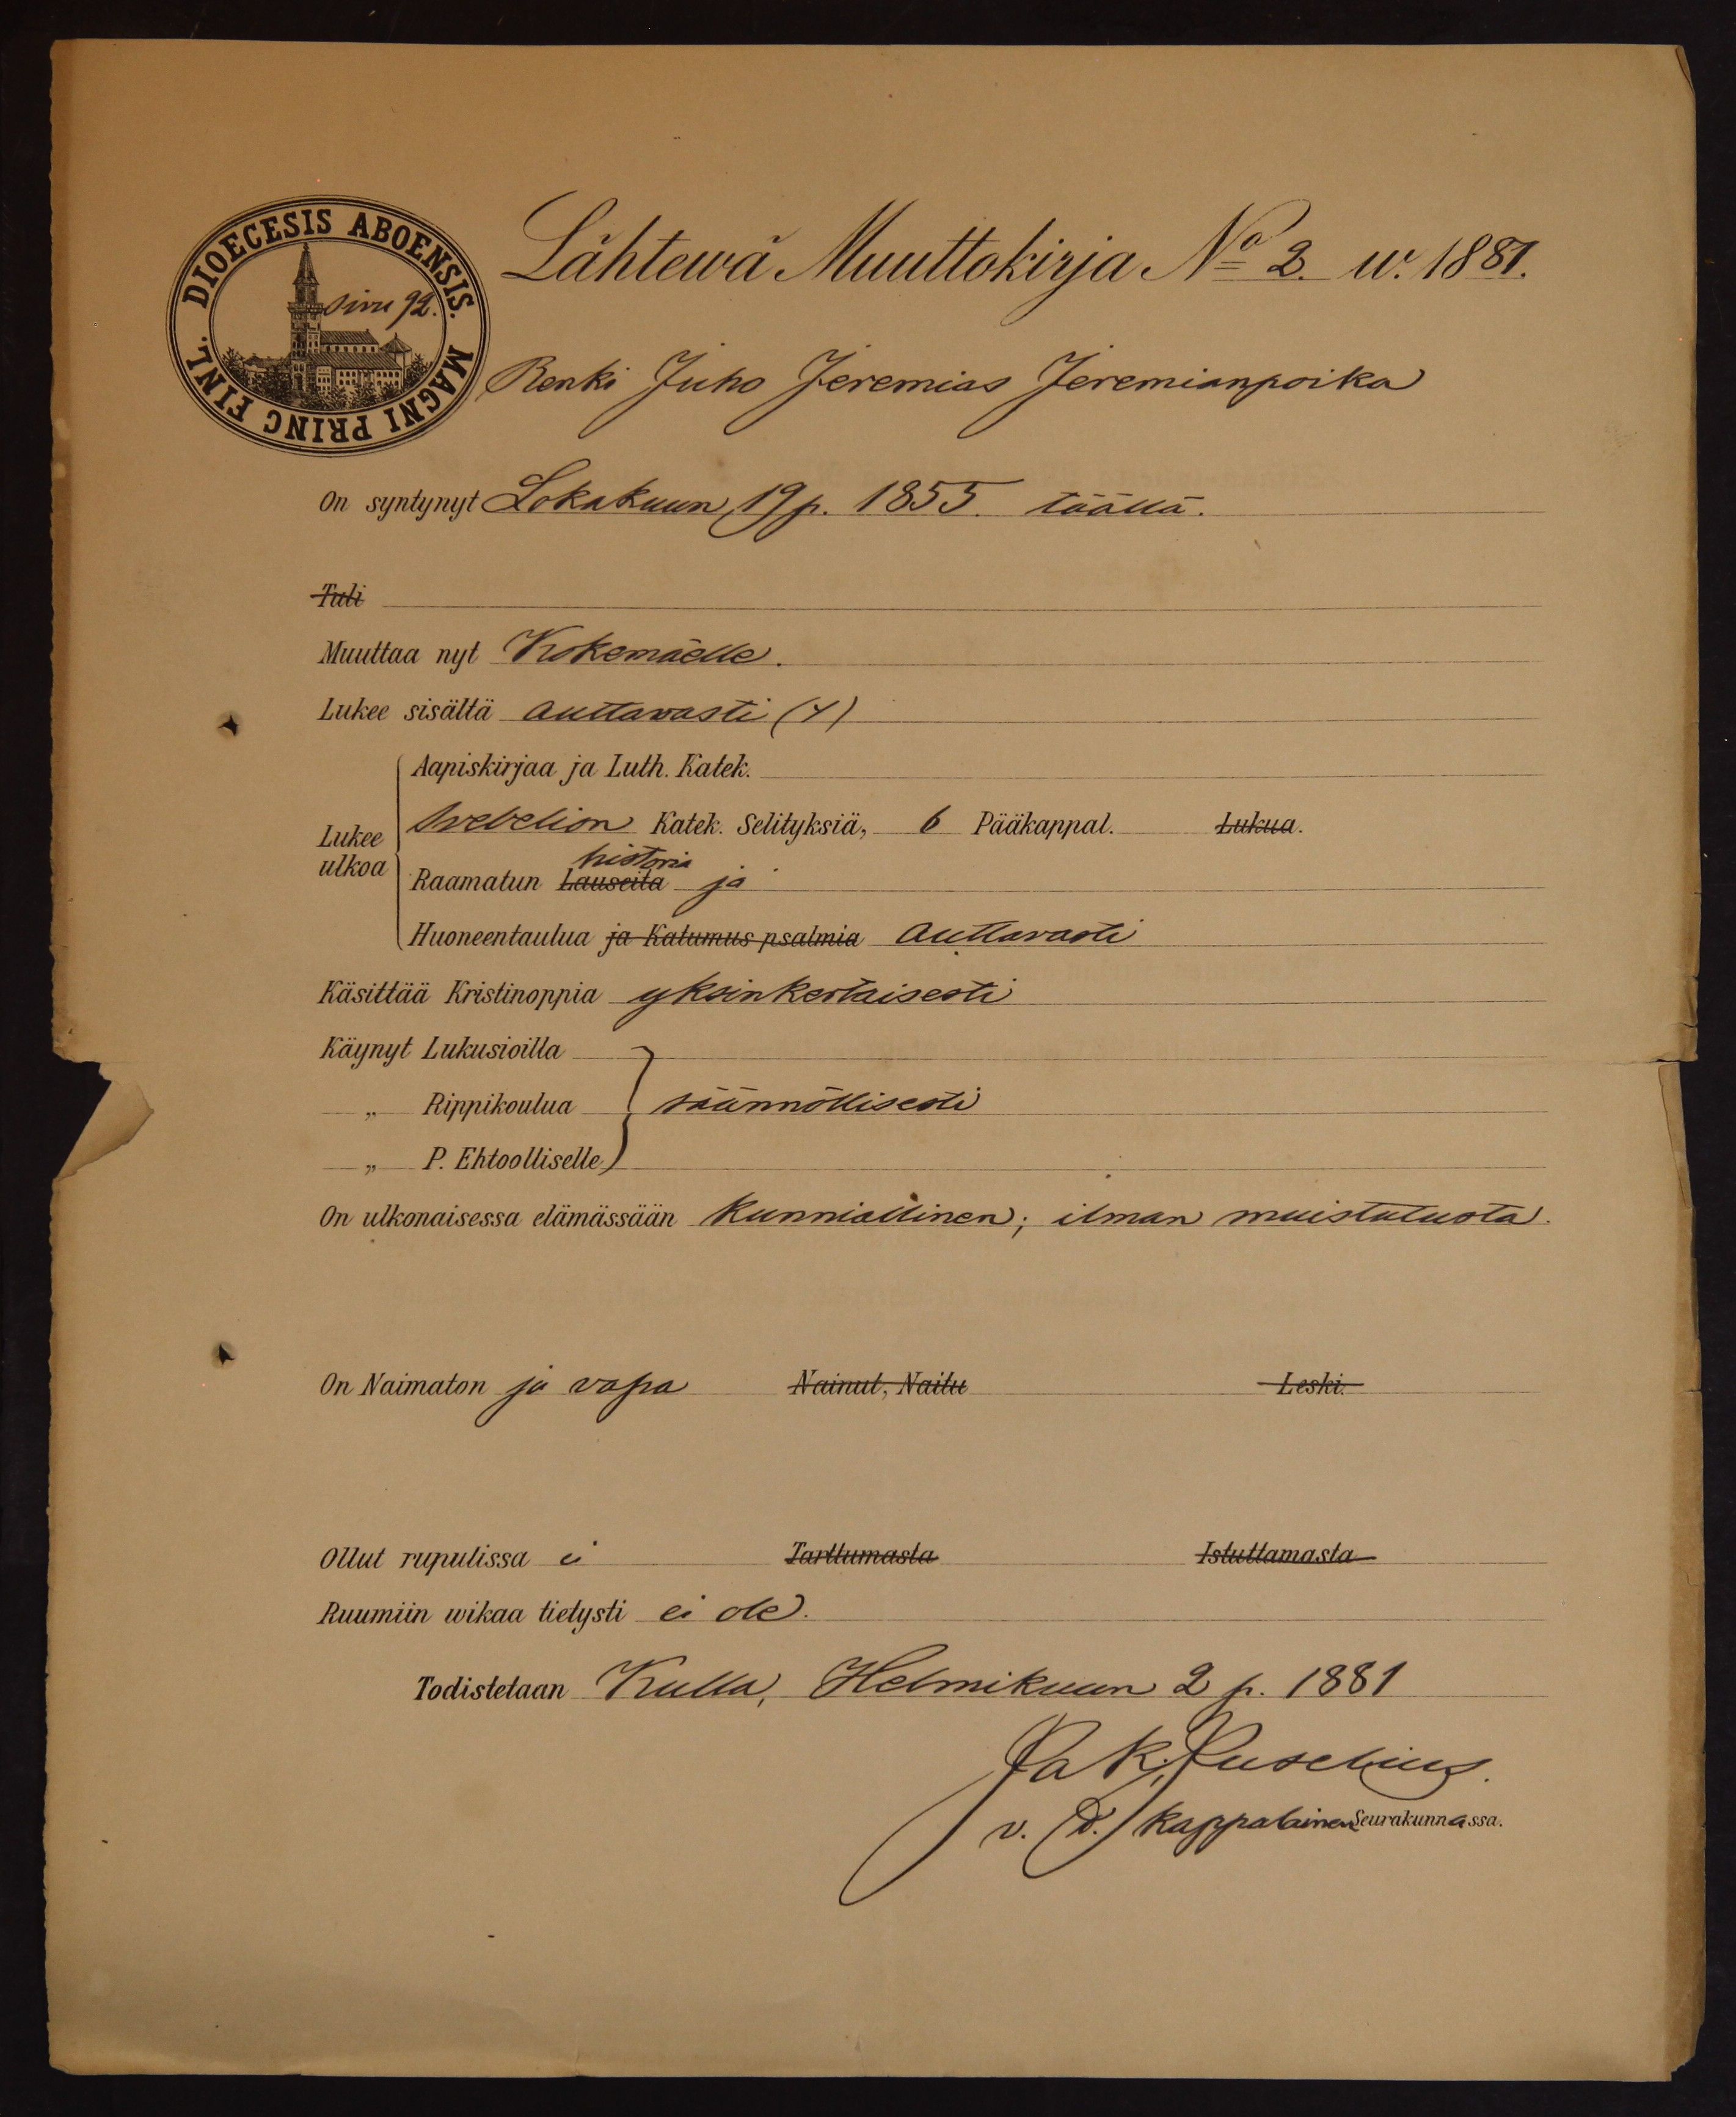 DIOECESIS ABOENSIS. MAGNI PRINC FINL.
sivu 92.
Lähtewä Muuttokirja No 2. w. 1881.
Renki Juho Jeremias Jeremianpoika
On syntynyt Lokakuun 19 p. 1855. täällä.
Tuli
Muuttaa nyt Kokemäelle.
Lukee sisältä auttavasti (4)
Aapiskirjaa ja Luth. Katek.
Lukee ulkoa
Svebelion Katek. Selityksiä, 6 Pääkappal. Lukua.
historia
Raamatun Lauseita ja
Huoneentaulua ja Katumus psalmia auttavasti
Käsittää Kristinoppia yksinkertaisesti
Käynyt Lukusioilla
„ Rippikoulua säännöllisesti
„ P. Ehtoolliselle
On ulkonaisessa elämässään kunniallinen; ilman muistutusta.
On Naimaton ja vapa Nainut, Naitu Leski.
Ollut rupulissa ei Tarttumasta Istuttamasta
Ruumiin wikaa tietysti ei ole.
Todistetaan Kulla, Helmikuun 2 p. 1881
Jak. Juselius.
v. t. kappalainen Seurakunnassa.